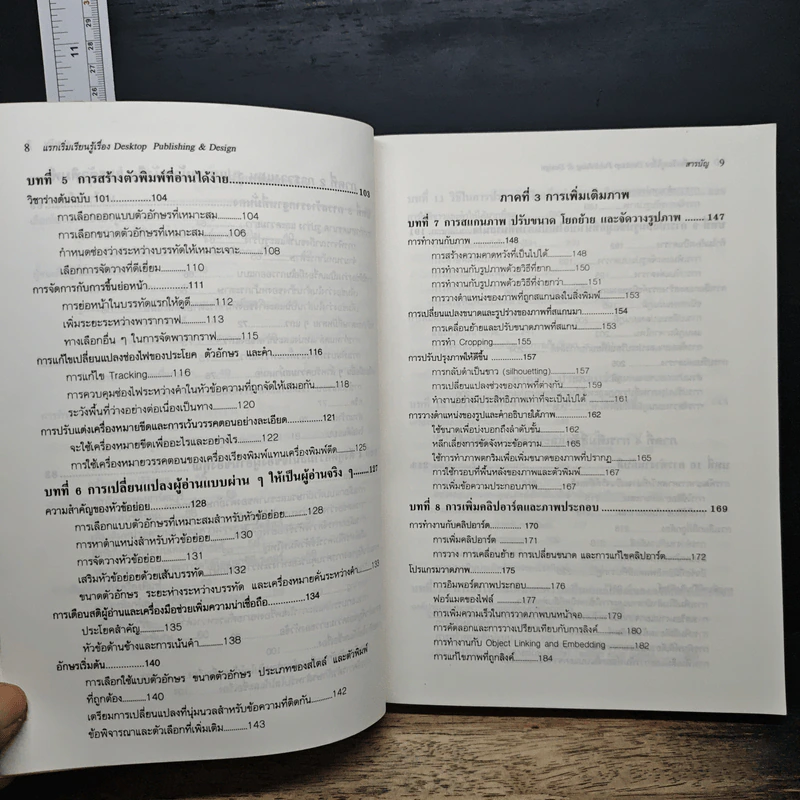 8 แรกเริ่มเรียนรู้เรื่อง Desktop Publishing & Design
บทที่ 5 การสร้างตัวพิมพ์ที่อ่านได้ง่าย....................103
วิชาร่างต้นฉบับ 101..............104
การเลือกออกแบบตัวอักษรที่เหมาะสม..........104
การเลือกขนาดตัวอักษรที่เหมาะสม..........106
กำหนดช่องว่างระหว่างบรรทัดให้เหมาะเจาะ..........108
เลือกการจัดวางที่ดีเยี่ยม..........110
การจัดการกับการขึ้นย่อหน้า..............111
การย่อหน้าในบรรทัดแรกให้ดูดี..........112
เพิ่มระยะระหว่างพารากราฟ..........113
ทางเลือกอื่น ๆ ในการจัดพารากราฟ..........115
การแก้ไขเปลี่ยนแปลงช่องไฟของประโยค ตัวอักษร และคำ..............116
การแก้ไข Tracking..........116
การควบคุมช่องไฟระหว่างคำในหัวข้อความที่ถูกจัดให้เสมอกัน..........118
ระวังพื้นที่ว่างอย่างต่อเนื่องเป็นทาง..........120
การปรับแต่งเครื่องหมายขีดและการเว้นวรรคตอนอย่างละเอียด..............121
จะใช้เครื่องหมายขีดเพื่ออะไรและอย่างไร..........122
การใช้เครื่องหมายวรรคตอนของเครื่องเรียงพิมพ์แทนเครื่องพิมพ์ดีด..........125
บทที่ 6 การเปลี่ยนแปลงผู้อ่านแบบผ่าน ๆ ให้เป็นผู้อ่านจริง ๆ.......127
ความสำคัญของหัวข้อย่อย..............128
การเลือกแบบตัวอักษรที่เหมาะสมสำหรับหัวข้อย่อย..........128
การหาตำแหน่งสำหรับหัวข้อย่อย..........130
การจัดวางหัวข้อย่อย..........131
เสริมหัวข้อย่อยด้วยเส้นบรรทัด..........132
ขนาดตัวอักษร ระยะห่างระหว่างบรรทัด และเครื่องหมายคั่นระหว่างคำ..........133
การเตือนสติผู้อ่านและเครื่องมือช่วยเพิ่มความน่าเชื่อถือ..............134
ประโยคสำคัญ..........135
หัวข้อด้านข้างและการเน้นคำ..........138
อักษรเริ่มต้น..............140
การเลือกใช้แบบตัวอักษร ขนาดตัวอักษร ประเภทของสไตล์ และตัวพิมพ์
ที่ถูกต้อง..........140
เตรียมการเปลี่ยนแปลงที่นุ่มนวลสำหรับข้อความที่ติดกัน..........142
ข้อพิจารณาและตัวเลือกที่เพิ่มเติม..........143
สารบัญ 9
ภาคที่ 3 การเพิ่มเติมภาพ
บทที่ 7 การสแกนภาพ ปรับขนาด โยกย้าย และจัดวางรูปภาพ .......147
การทำงานกับภาพ ..............148
การสร้างความคาดหวังที่เป็นไปได้..........148
การทำงานกับรูปภาพด้วยวิธีที่ยาก..........150
การทำงานกับรูปภาพด้วยวิธีที่ง่ายกว่า..........151
การวางตำแหน่งของภาพที่ถูกสแกนลงในสิ่งพิมพ์..........153
การเปลี่ยนแปลงขนาดและรูปร่างของภาพที่สแกนมา..............154
การเคลื่อนย้ายและปรับขนาดภาพที่สแกน..........153
การทำ Cropping..........155
การปรับปรุงภาพให้ดีขึ้น ..............157
การกลับดำเป็นขาว (silhouetting)..........157
การเปลี่ยนแปลงช่วงของภาพที่ต่างกัน ..........159
ทำงานอย่างมีประสิทธิภาพเท่าที่จะเป็นไปได้ ..........161
การวางตำแหน่งของรูปและคำอธิบายใต้ภาพ..............162
ใช้ขนาดเพื่อบ่งบอกถึงลำดับขั้น..........162
หลีกเลี่ยงการขัดจังหวะข้อความ ..........165
ใช้การทำภาพตกริมเพื่อเพิ่มขนาดของภาพที่ปรากฏ..........165
การใช้กรอบที่พื้นหลังของภาพและตัวพิมพ์..........167
การเพิ่มข้อความประกอบภาพ..........167
บทที่ 8 การเพิ่มคลิปอาร์ตและภาพประกอบ ..............................169
การทำงานกับคลิปอาร์ต.............. 170
การเพิ่มคลิปอาร์ต ..........171
การวาง การเคลื่อนย้าย การเปลี่ยนขนาด และการแก้ไขคลิปอาร์ต..........172
โปรแกรมวาดภาพ..............175
การอิมพอร์ตภาพประกอบ..........176
ฟอร์แมตของไฟล์ ..........177
การเพิ่มความเร็วในการวาดภาพบนหน้าจอ..........179
การคัดลอกและการวางเปรียบเทียบกับการลิงค์..........180
การทำงานกับ Object Linking and Embedding ..........182
การแก้ไขภาพที่ถูกลิงค์..........184